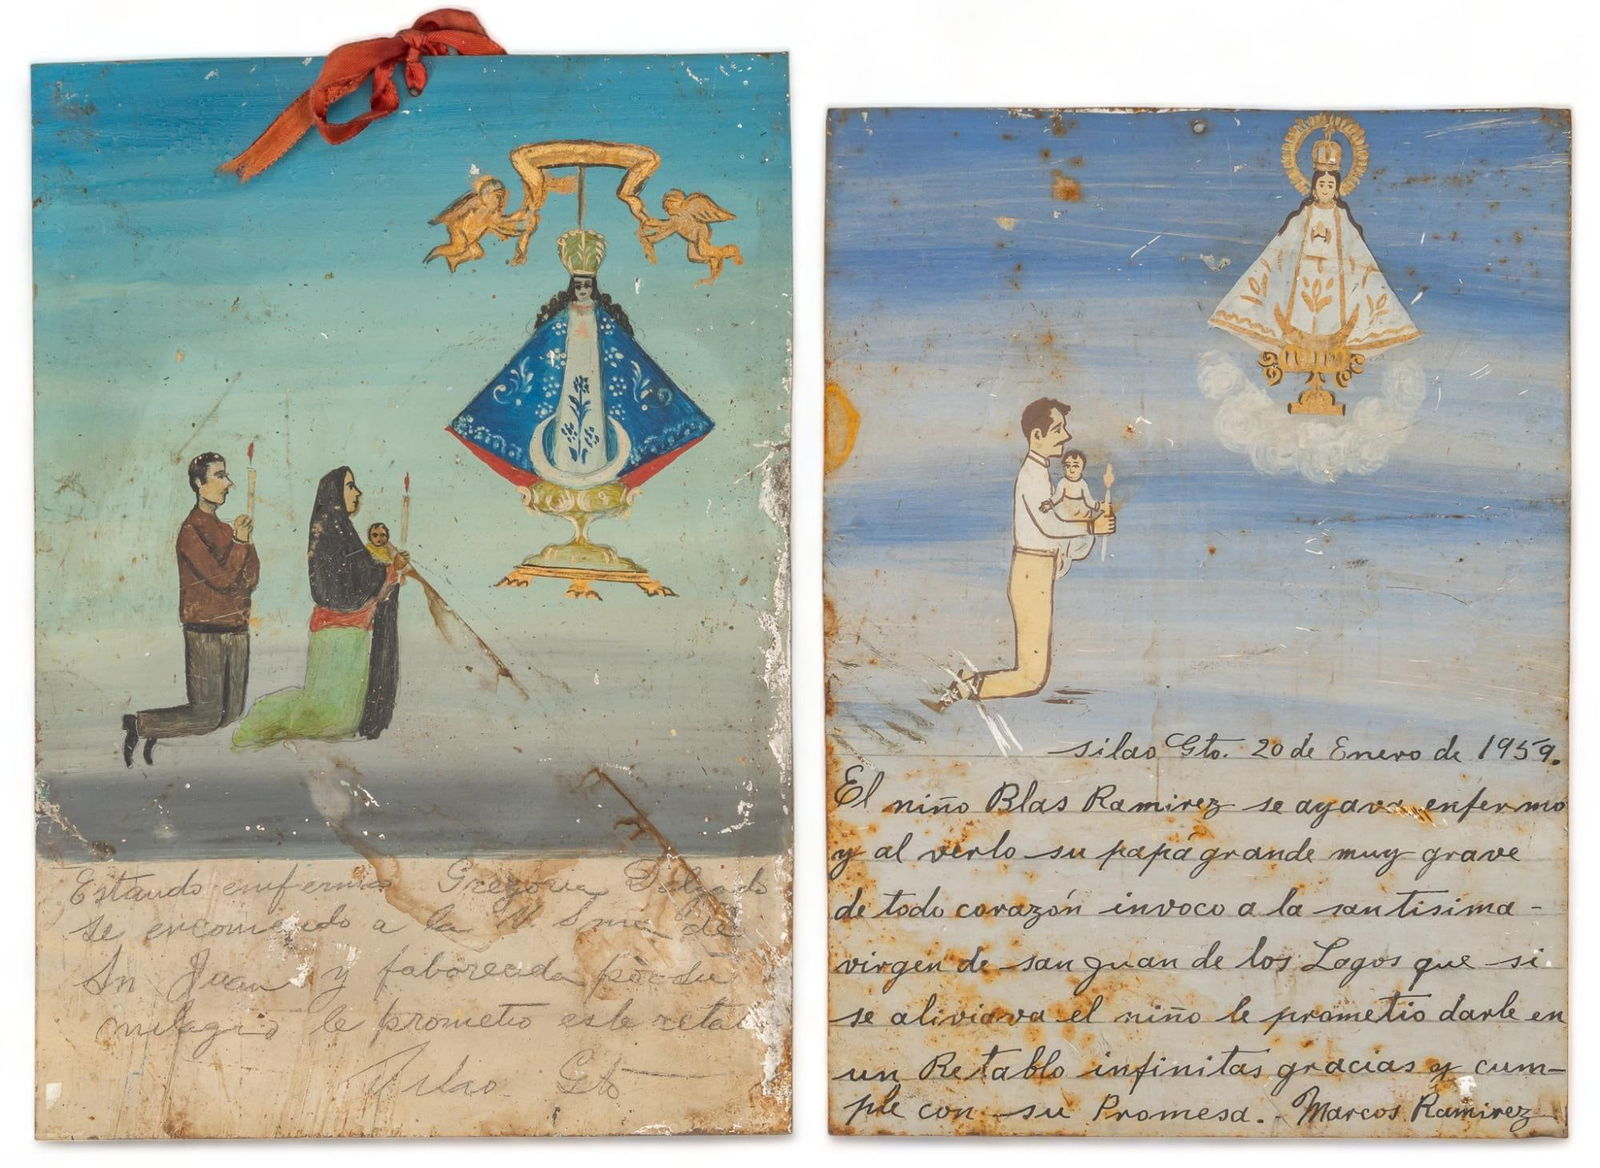 Estando emfermo Gregoria Delgado
se encomendo a la V. Sma de
Sn Juan y faborecida por su
milagro le prometio este
Silao Gto
Silao Gto. 20 de Enero de 1959.
El niño Blas Ramirez se ayava enfermo
y al verlo su papá grande muy grave
de todo corazón invoco a la santisima-
virgen de san Juan de los Lagos que si.
se aliviava el niño le prometio darle en
un Retablo infinitas gracias y cum-
ple con su Promesa.- Marcos Ramirez